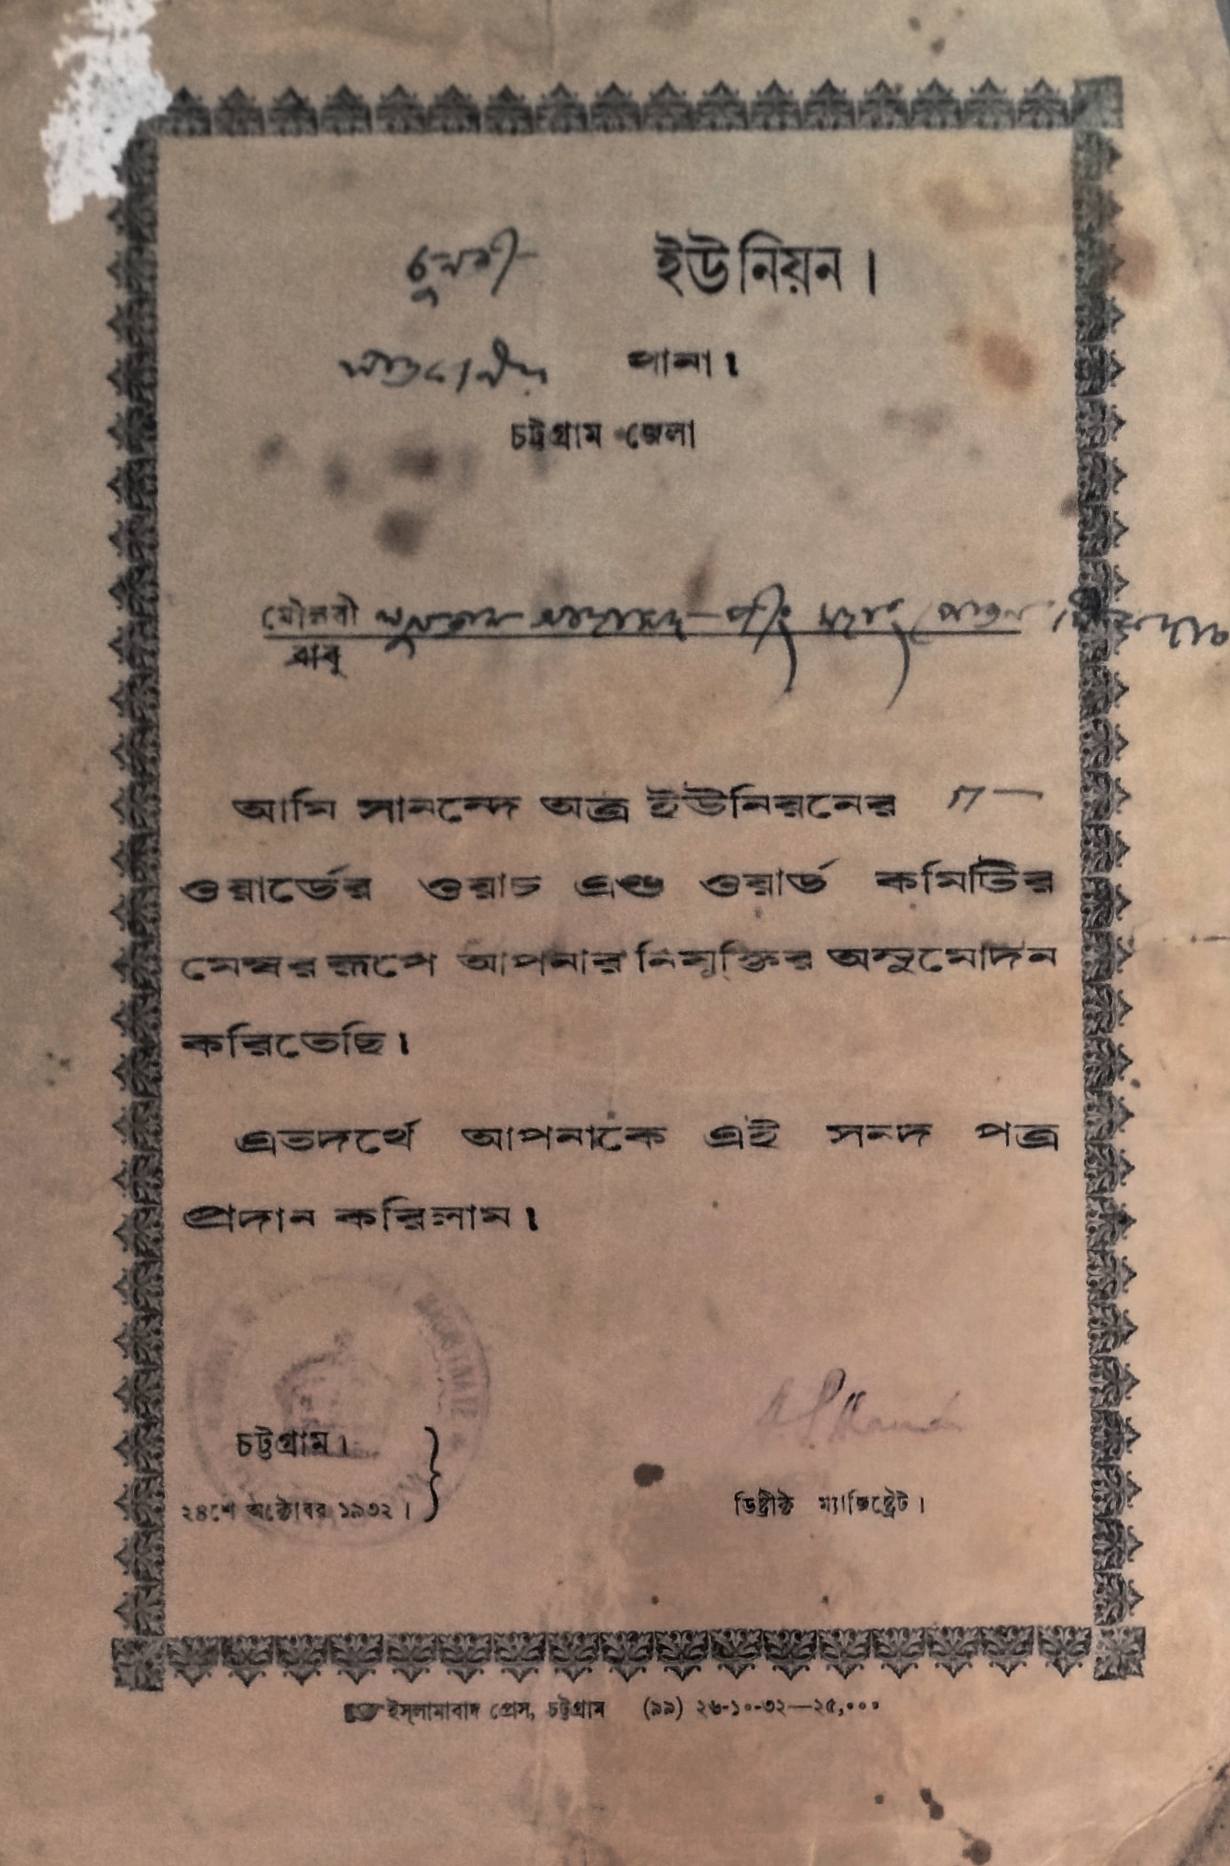 চুনতী ইউনিয়ন।
সাতকানীয়া থানা।
চট্টগ্রাম জেলা
মৌলবী
বাবু
আমি সানন্দে অত্র ইউনিয়নের
ওয়ার্ডের ওয়াচ এণ্ড ওয়ার্ড কমিটির
মেম্বর রূপে আপনার নিযুক্তির অনুমোদন
করিতেছি।
এতদর্থে আপনাকে এই সনদ পত্র
প্রদান করিলাম।
চট্টগ্রাম।
২৪শে অক্টোবর ১৯৩২।
ডিষ্ট্রীক্ট ম্যাজিষ্ট্রেট।
ইস্‌লামাবাদ প্রেস, চট্টগ্রাম (৯৯) ২৬-১০-৩২—২৫,০০০